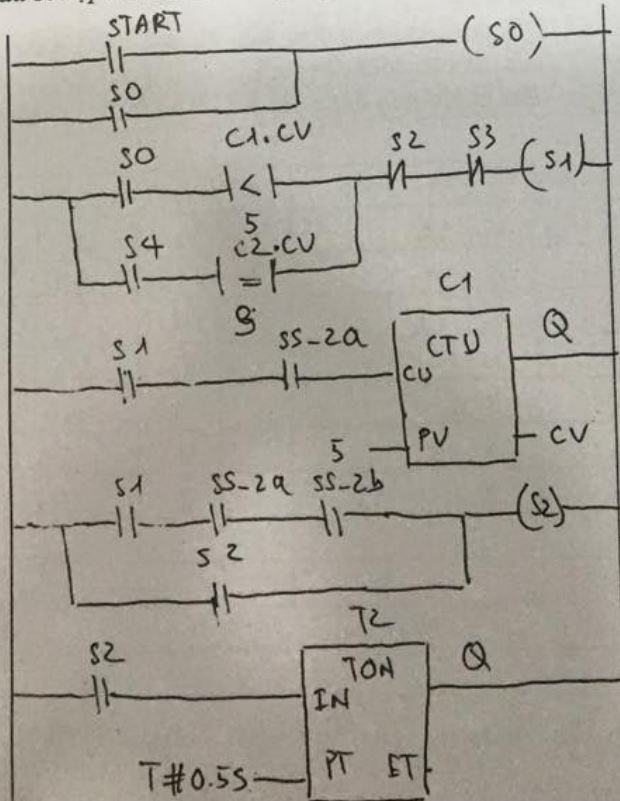 START
(S0)
S0
C1.CV
S0
<
S2
S3
(S1)
5
S4
C2.CV
=
C1
S1
SS-2a
CTU
Q
CU
5
PV
CV
S1
SS-2a
SS-2b
(S2)
S2
T2
S2
TON
Q
IN
T#0.5S
PT
ET